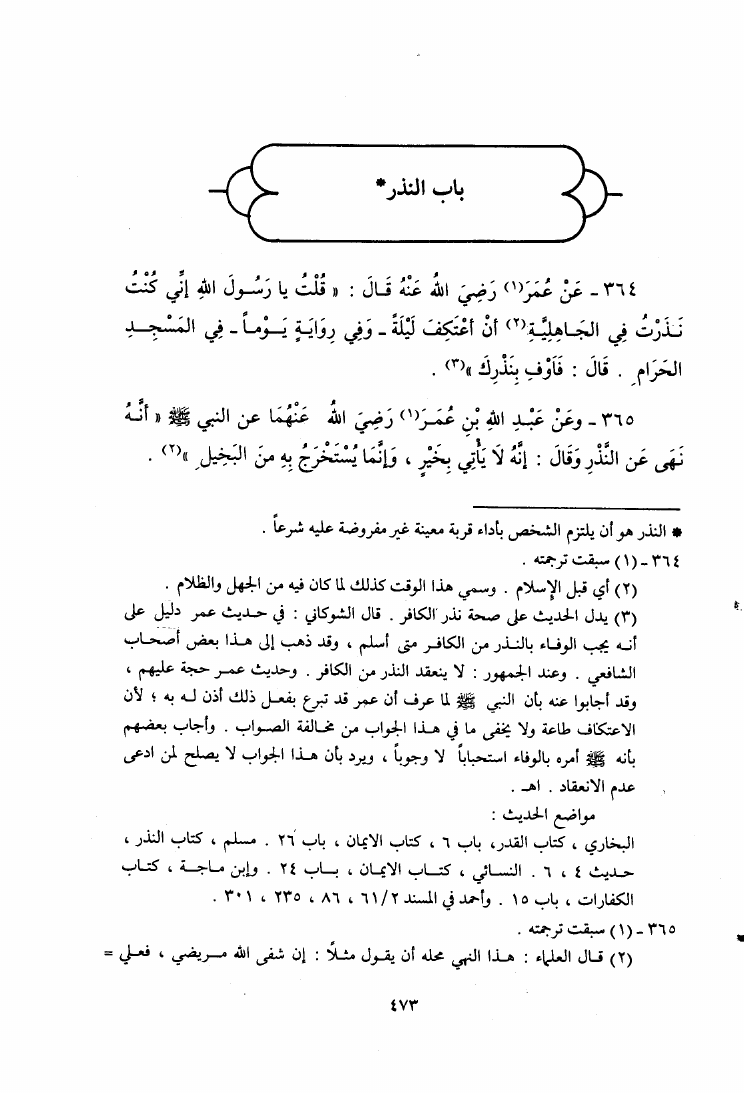 باب النذر*
٣٦٤ - عَنْ عُمَرَ(١) رَضِيَ اللهُ عَنْهُ قَالَ : « قُلْتُ يا رَسُولَ اللهِ إنِّي كُنْتُ
نَذَرْتُ فِي الجَاهِلِيَّةِ(٢) أنْ أعْتَكِفَ لَيْلَةً - وَفِي رِوَايَةٍ يَوْماً - فِي المَسْجِدِ
الحَرَامِ . قَالَ : فَأَوْفِ بِنَذْرِكَ »(٣) .
٣٦٥ - وعَنْ عَبْدِ اللهِ بْنِ عُمَرَ(١) رَضِيَ اللهُ عَنْهُمَا عن النبي ﷺ « أنَّهُ
نَهَى عَنِ النَّذْرِ وَقَالَ : إنَّهُ لَا يَأْتِي بِخَيْرٍ ، وَإنَّمَا يُسْتَخْرَجُ بِهِ مِنَ البَخِيلِ »(٢) .
* النذر هو أن يلتزم الشخص بأداء قربة معينة غير مفروضة عليه شرعاً .
٣٦٤ - (١) سبقت ترجمته .
(٢) أي قبل الإسلام . وسمي هذا الوقت كذلك لما كان فيه من الجهل والظلام .
(٣) يدل الحديث على صحة نذر الكافر . قال الشوكاني : في حديث عمر دليل على
أنه يجب الوفاء بالنذر من الكافر متى أسلم ، وقد ذهب إلى هذا بعض أصحاب
الشافعي . وعند الجمهور : لا ينعقد النذر من الكافر . وحديث عمر حجة عليهم ،
وقد أجابوا عنه بأن النبي ﷺ لما عرف أن عمر قد تبرع بفعل ذلك أذن له به ؛ لأن
الاعتكاف طاعة ولا يخفى ما في هذا الجواب من مخالفة الصواب . وأجاب بعضهم
بأنه ﷺ أمره بالوفاء استحباباً لا وجوباً ، ويرد بأن هذا الجواب لا يصلح لمن ادعى
عدم الانعقاد . اهـ .
مواضع الحديث :
البخاري ، كتاب القدر، باب ٦ ، كتاب الايمان ، باب ٢٦ . مسلم ، كتاب النذر ،
حديث ٤ ، ٦ . النسائي ، كتاب الايمان ، باب ٢٤ . وإبن ماجة ، كتاب
الكفارات ، باب ١٥ . وأحمد في المسند ٦١/٢ ، ٨٦ ، ٢٣٥ ، ٣٠١ .
٣٦٥ - (١) سبقت ترجمته .
(٢) قال العلماء : هذا النهي محله أن يقول مثلاً : إن شفى الله مريضي ، فعلي =
٤٧٣